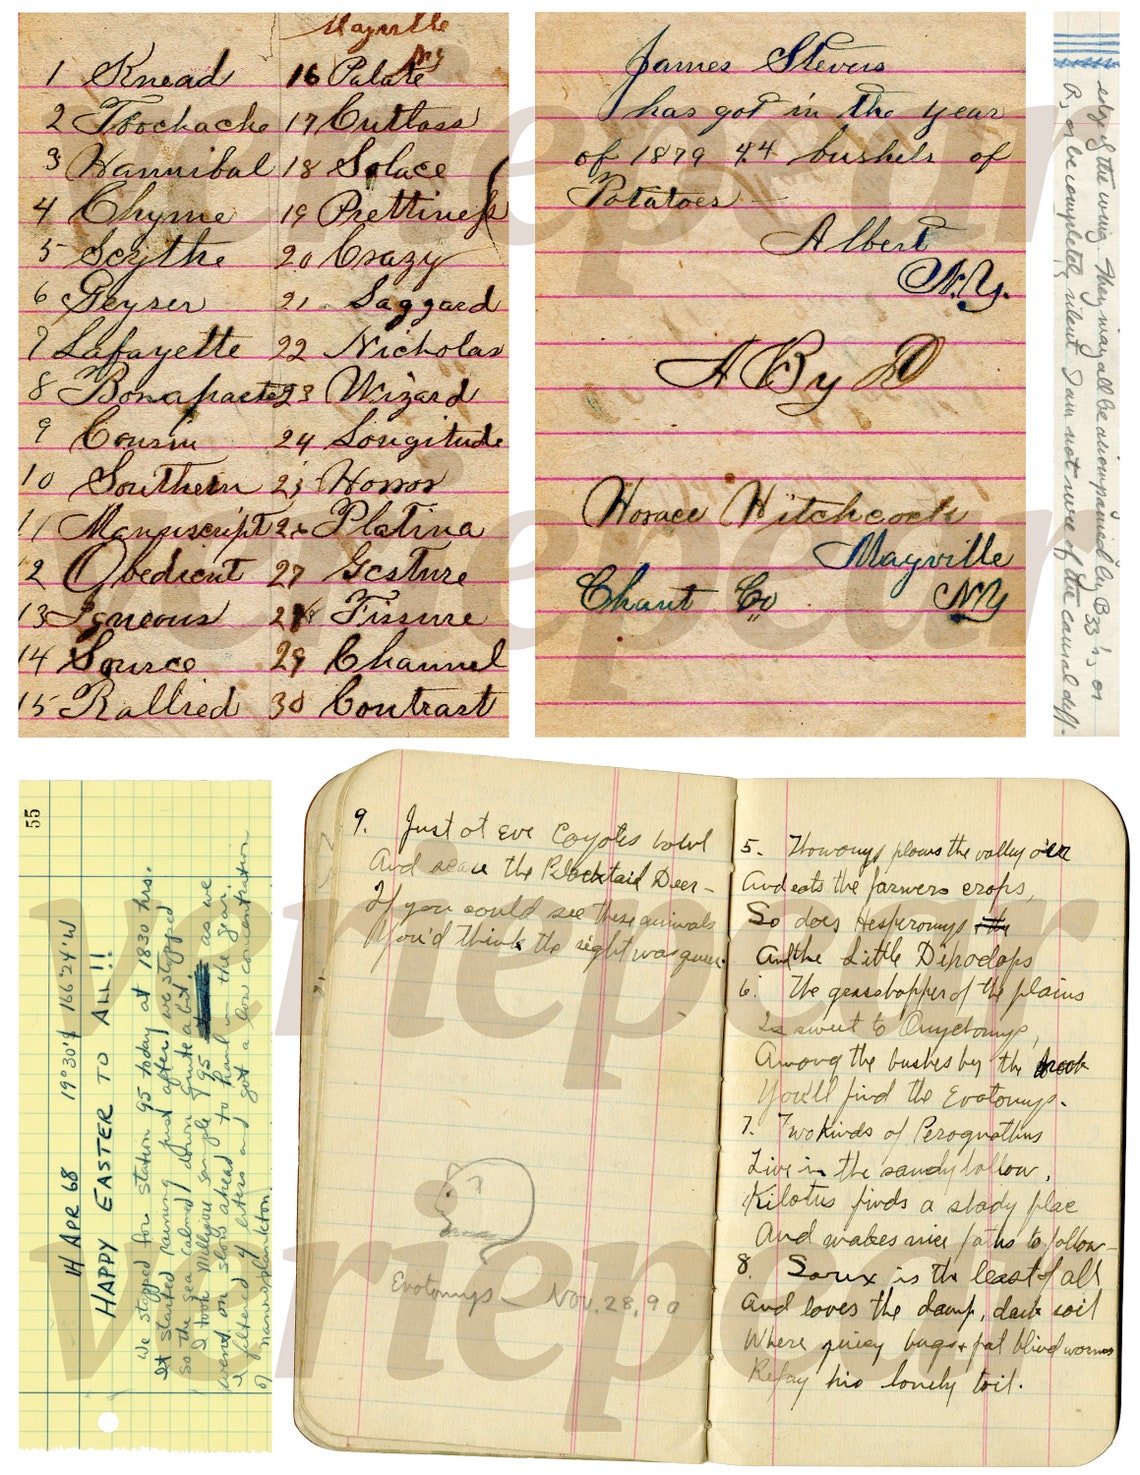 Mayville
NY
1 Knead
2 Toochache
3 Hannibal
4 Chyme
5 Scythe
6 Geyser
7 Lafayette
8 Bonaparte
9 Cousin
10 Southern
11 Manuscript
12 Obedient
13 Igneous
14 Source
15 Rallied
16 Palate
17 Cutlass
18 Solace
19 Prettiness
20 Crazy
21 Laggard
22 Nicholas
23 Wizard
24 Longitude
25 Horror
26 Platina
27 Gesture
28 Fissure
29 Channel
30 Contrast
James Stevens
has got in the year
of 1879 44 bushels of
Potatoes
Albert
N.Y.
A By D
Horace Hitchcock
Mayville
Chaut Co NY
edge of the wing. They may all be accompanied by B33's, or
R, or be completely silent. I am not sure of the causal diff-
55
14 APR 68 19°30'S 166°24'W
HAPPY EASTER TO ALL!!
We stopped for station 95 today at 1830 hrs.
It started raining just after we stopped
so the sea calmed down quite a bit.
I took Millipore sample 95 as we
went on slow ahead to haul in the gear.
I filtered 4 liters and got a low concentration
of nannoplankton.
9. Just at Eve Coyotes howl
And scare the Blacktail Deer -
If you could see these animals
You'd think the sight was queer.
Evotomys - Nov. 28, 90
5. Thomomys plows the valley o'er
And eats the farmers crops,
So does Hesperomys the
And the Little Dipodops
6. The grasshopper of the plains
Is sweet to Onychomys,
Among the bushes by the brook
You'll find the Evotomys.
7. Two Kinds of Perognathus
Live in the sandy hollow,
finds a shady place
And makes nice paths to follow -
8. Sorex is the least of all
And loves the damp, dark soil
Where juicy bugs + fat blind worms
Repay his lonely toil.
veriepcar
veriepcar
veriepcar
veriepcar